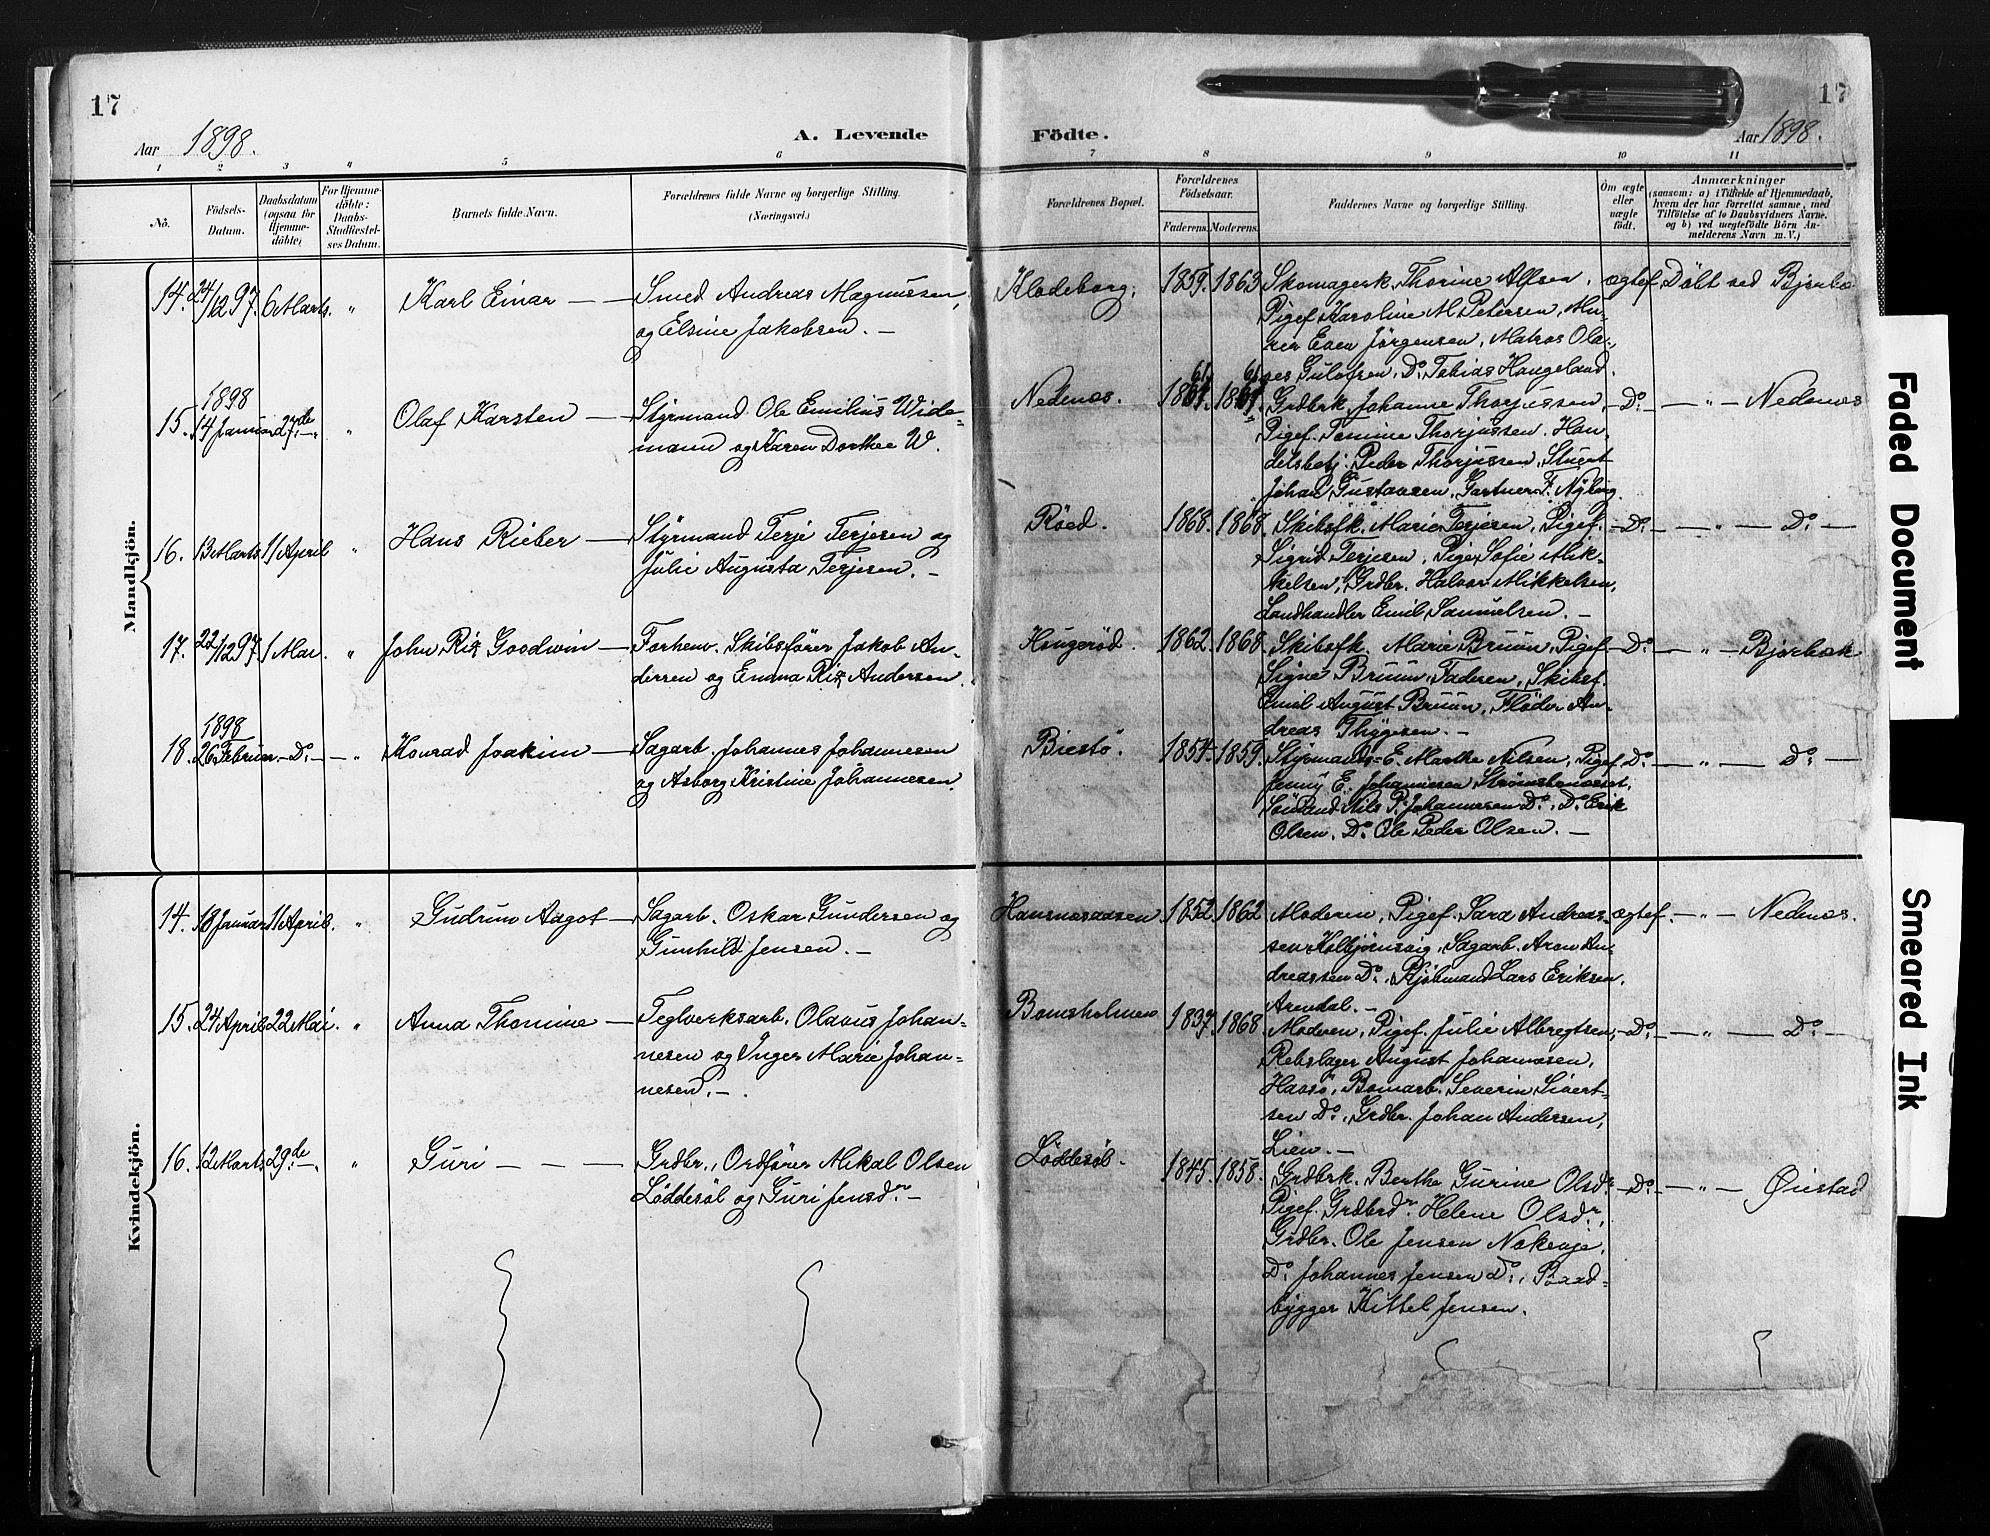 17
17
Aar 1898.
A. Levende
Födte.
Aar 1898.
1 2 3 " 5 6 7 8 9 10 11
No.
Födsels-
Datum.
Daabsdatum
(ogsaa for
Hjemme-
döbte)
For Hjemme-
döbte:
Daabs-
Stadfæstel-
ses Datum.
Barnets fulde Navn.
Forældrenes fulde Navne og borgerlige Stilling.
(Næringsvei.)
Forældrenes Bopæl.
Forældrenes
Födselsaar.
Faderens.
Moderens.
Faddernes Navne og borgerlige Stilling.
Om ægte
eller
uægte
født.
Anmærkninger
(saasom: a) i Tilfælde af Hjemmedaab,
hvem der har forrettet samme, med
Tilföielse af to Daabsvidners Navne.
og b) ved uægtefödte Börn An-
melderens Navn m. V.)
Mandkjön.
14. 24/12 97. 6 Marts. " Karl Einar — —
Smed Andreas Magnussen,
og Elsine Jakobsen. —
Klodeborg. 1859. 1863.
Skomagerk. Thorine Alfsen,
Pigef. Karoline M Petersen, Mu-
rer Even Jörgensen, Matros Ola-
ves Gulovsen, Do. Tobias Haugeland.
ægtef. Döbt ved Bjorbæ
1898
15. 14 Januar 27de " Olaf Karsten —
Styrmand Ole Emilius Wide-
mann og Karen Dorthea W.
Nedenæs. 61. 61.
Grdbrk Johanne Thorjussen,
Pigef. Tomine Thorjussen, Han-
delsbetj. Peder Thorjussen, Stuert
Johan Gustavsen, Gartner F. Nyling.
— Do. — — " — Nedenæs
16. 13 Marts. 11 April " Hans Rieber —
Styrmand Terje Terjesen og
Julie Augusta Terjesen. —
Röed. 1868. 1868.
Skibsfk. Marie Terjesen, Pigef.
Sigrid Terjesen, Pige Sofie Mik-
kelsen, Grdbr. Halvor Mikkelsen,
Landhandler Emil Samuelsen. —
— Do. — — " — Do. —
17. 22/12 97. 1 Mai. " John Rix Goodwin —
Forhenv. Skibsförer Jakob An-
dersen og Emma Rix Andersen.
Haugeröd. 1862. 1868.
Skibsfk. Marie Bruun, Pigef.
Signe Bruun, Faderen, Skibsf.
Emil August Bruun, Flöder An-
dreas Thygesen. —
— Do. — — " — Bjorbæk
1898
18. 26 Februar — Do. — — " Konrad Joakim —
Sagarb. Johannes Johannesen
og Asborg Kristine Johannesen.
Biestö. 1854. 1859.
Styrmands-E. Marthe Nilsen, Pigef.
Jenny E. Johannesen Strömsbunæset,
Sömand Nils P. Johannesen Do., Do. Erik
Olsen, Do. Ole Peder Olsen. —
Do. — — " — Do. —
Kvindekjön.
14. 18 Januar 11 April. " Gudrun Aagot —
Sagarb. Oskar Gundersen og
Gunhild Jensen. —
Hansnæsaasen 1852. 1862.
Moderen, Pigef. Sara Andreas-
sen Kolbjörnsvig, Sagarb. Aron An-
dreassen Do., Kjöbmand Lars Eriksen,
Arendal. —
ægtef. — " — Nedenæs.
15. 24 April. 22 Mai. " Anna Thomine —
Teglverksarb. Olavus Johan-
nesen og Inger Marie Johan-
nesen. —
Bomsholmen 1837. 1868.
Moderen, Pigef. Julie Albregtsen,
Rebslager August Johannesen,
Havsö, Bomarb. Severin Sivert-
sen Do., Grdbr. Johan Andersen,
Lien. —
— Do. — — " — Do. —
16. 12 Marts 29.de " Guri — — —
Grdbr., Ordförer Mikal Olsen
Löddesöl og Guri Jensdr. —
Löddesöl. 1845. 1858.
Grdbrk. Berthe Gurine Olsdr.
Pigef. Grdbrdr. Helene Olsdr.,
Grdbr. Ole Jensen Nakenje,
Do. Johannes Jensen Do., Baad-
bygger Kittel Jensen.
— Do. — — " — Öiestad
Faded Document
Smeared Ink